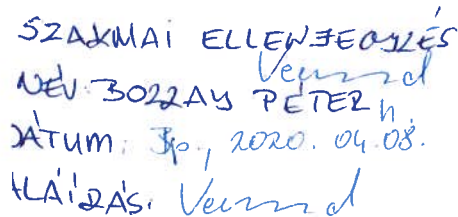 SZAKMAI ELLENJEGYZÉS
NÉV: BOZZAY PÉTER h.
DÁTUM: Bp., 2020. 04. 08.
ALÁÍRÁS: